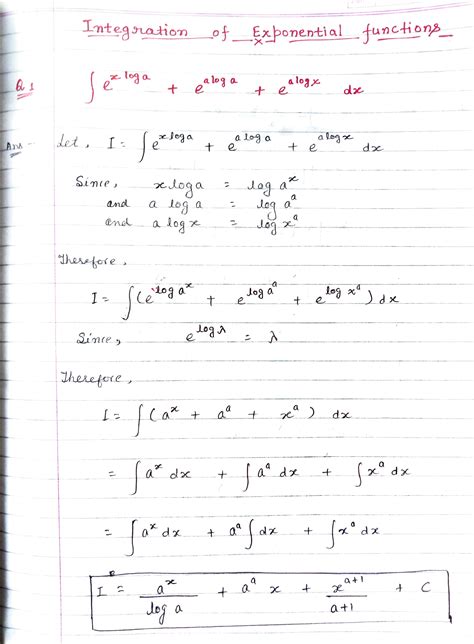 Integration of Exponential functions
Q.1 ∫ e^{x log a} + e^{a log a} + e^{a log x} dx
Ans - Let, I = ∫ e^{x log a} + e^{a log a} + e^{a log x} dx
Since, x log a = log a^x
and a log a = log a^a
and a log x = log x^a
Therefore,
I = ∫ (e^{log a^x} + e^{log a^a} + e^{log x^a}) dx
Since, e^{log λ} = λ
Therefore,
I = ∫ (a^x + a^a + x^a) dx
= ∫ a^x dx + ∫ a^a dx + ∫ x^a dx
= ∫ a^x dx + a^a ∫ dx + ∫ x^a dx
I = a^x / log a + a^a x + x^{a+1} / a+1 + C